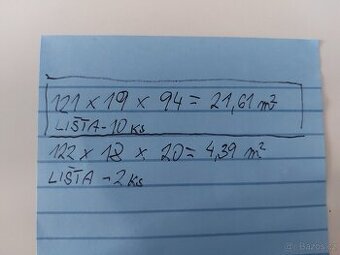 121 x 19 x 94 = 21,61 m²
LIŠTA - 10 ks
122 x 18 x 20 = 4,39 m²
LIŠTA - 2 ks